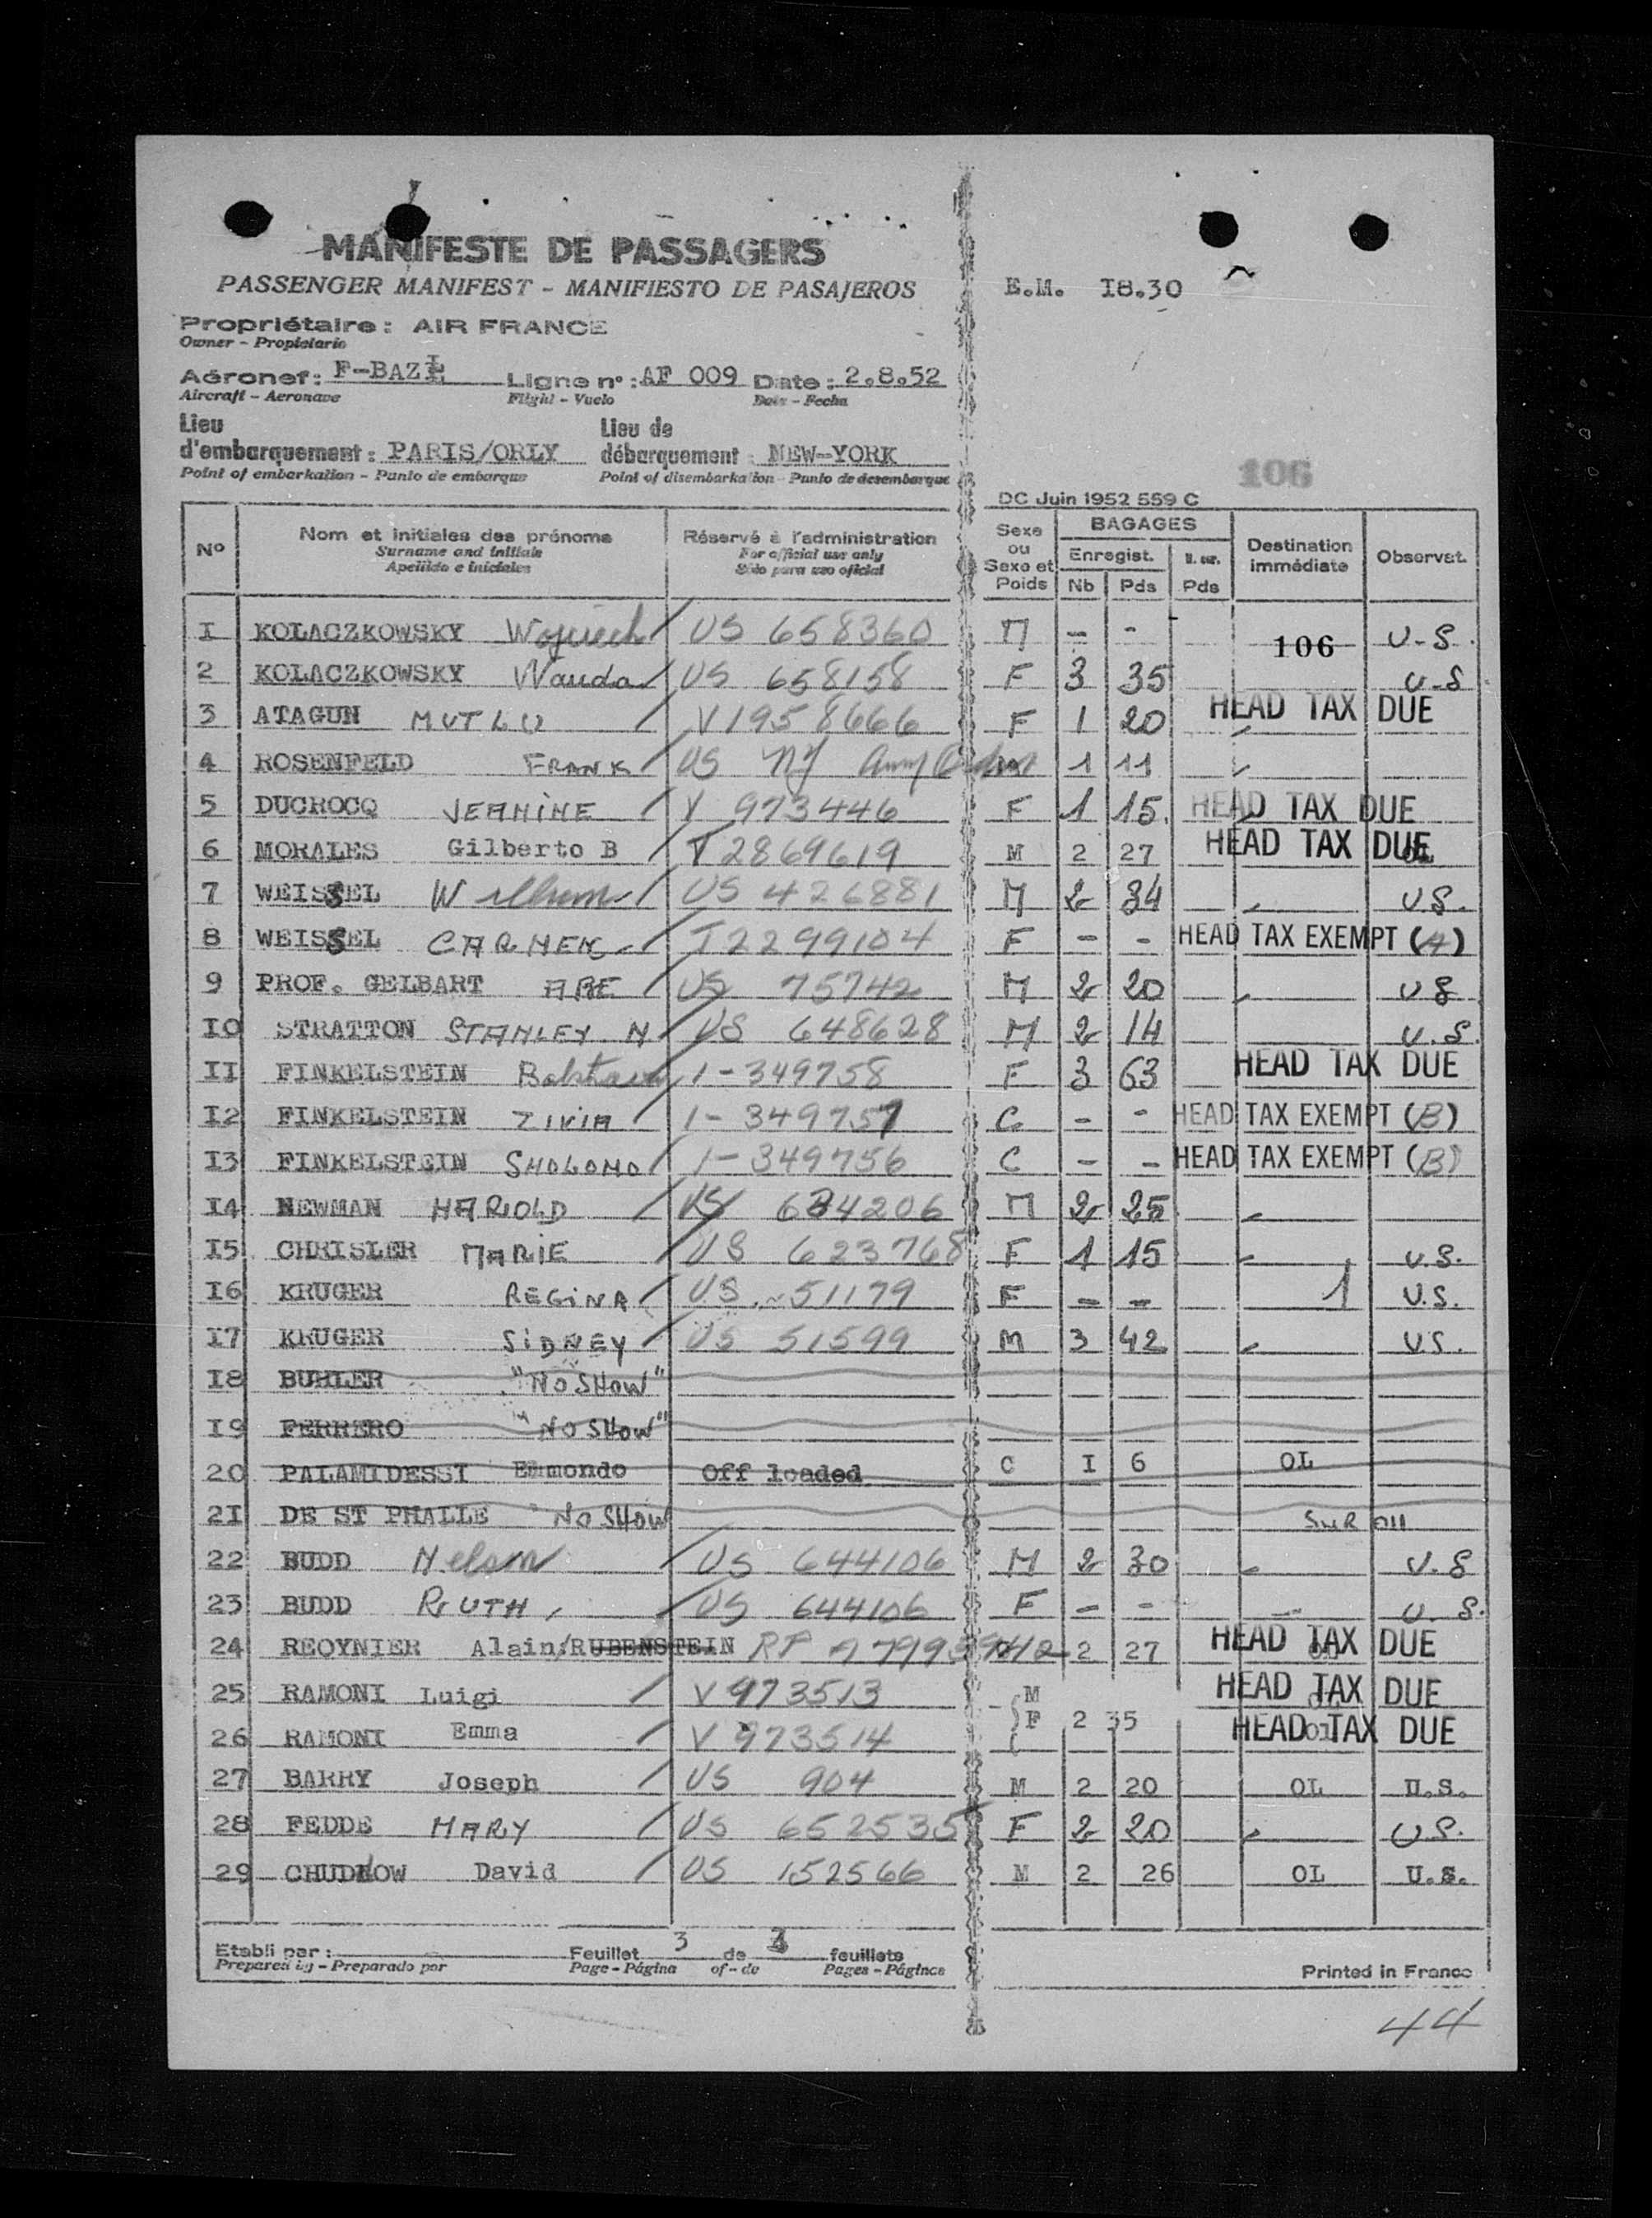 MANIFESTE DE PASSAGERS
PASSENGER MANIFEST - MANIFIESTO DE PASAJEROS
E.M. I8.30
Propriétaire : AIR FRANCE
Owner - Propietario
Aéronef : F-BAZ Ligne n° : AF 009 Date : 2.8.52
Aircraft - Aeronave Flight - Vuelo Date - Fecha
Lieu d'embarquement : PARIS/ORLY Lieu de débarquement : NEW-YORK
Point of embarkation - Punto de embarque Point of disembarkation - Punto de desembarque
106
DC Juin 1952 559 C
N° Nom et initiales des prénoms Réservé à l'administration Sexe ou Sexe et Poids BAGAGES Destination immédiate Observat.
Surname and initials For official use only Enregist.
Apellido e iniciales Sólo para uso oficial Nb Pds Pds
I KOLACZKOWSKY Wojciech / US 658360 M - - 106 U-S.
2 KOLACZKOWSKY Wanda / US 658158 F 3 35 U-S
3 ATAGUN MUTLU / V1958666 F 1 20 HEAD TAX DUE
4 ROSENFELD FRANK / US 1 11
5 DUCROCQ JEANINE / V 973446 F 1 15 HEAD TAX DUE
6 MORALES Gilberto B / T2869619 M 2 27 HEAD TAX DUE
7 WEISSEL William / US 426881 M 2 34 U.S.
8 WEISSEL CARMEN / T2299104 F - - HEAD TAX EXEMPT (A)
9 PROF. GELBART ABE / US 75742 M 2 20 US
I0 STRATTON STANLEY N / US 648628 M 2 14 U.S.
II FINKELSTEIN / I-349758 F 3 63 HEAD TAX DUE
I2 FINKELSTEIN ZIVIA / I-349757 C - - HEAD TAX EXEMPT (B)
I3 FINKELSTEIN SHOLOMO / I-349756 C - - HEAD TAX EXEMPT (B)
I4 NEWMAN HAROLD / US 684206 M 2 25
I5 CHRISLER MARIE / US 623768 F 1 15 U.S.
I6 KRUGER REGINA / US 51179 F - - 1 U.S.
I7 KRUGER SIDNEY / US 51599 M 3 42 U.S.
I8 BUHLER "NO SHOW"
I9 FERRERO "NO SHOW"
20 PALAMIDESSI Edmondo Off loaded C I 6 OL
2I DE ST PHALLE "NO SHOW SUR 011
22 BUDD Nelson / US 644106 M 2 30 U.S
23 BUDD RUTH / US 644106 F - - U.S.
24 REOYNIER Alain/RUBENSTEIN RP 2 27 HEAD TAX DUE
25 RAMONI Luigi / V 973513 M HEAD TAX DUE
26 RAMONI Emma V 973514 F 2 35 HEAD TAX DUE
27 BARRY Joseph / US 904 M 2 20 OL U.S.
28 FEDDE MARY / US 652535 F 2 20 U.S.
29 CHUDNOW David / US 152566 M 2 26 OL U.S.
Etabli par : Feuillet 3 de 3 feuillets
Prepared by - Preparado por Page - Página of - de Pages - Páginas
Printed in France
44